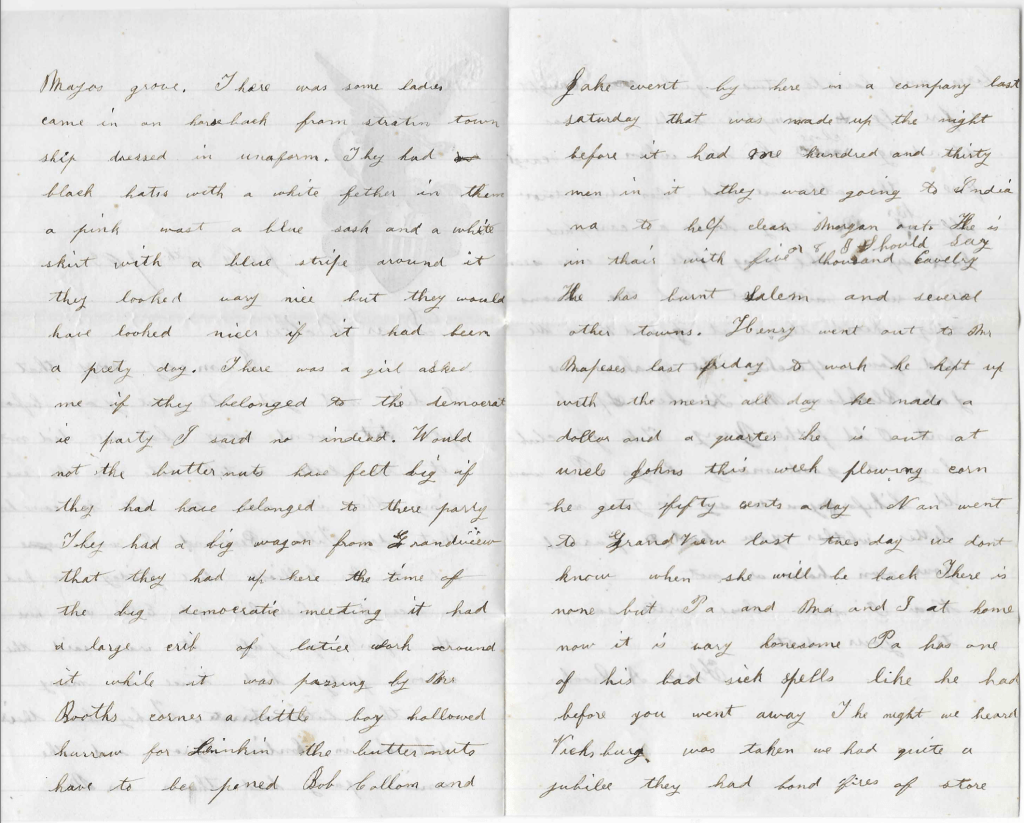 Mayos grove. There was some ladies
came in on horseback from stratin town
ship dressed in unaform. They had
black hats with a white fether in them
a pink wast a blue sash and a white
skirt with a blue stripe around it
they looked vary nice but they would
have looked nicer if it had been
a prety day. There was a girl asked
me if they belonged to the democrat
ic party I said no indeed. Would
not the butternuts have felt big if
they had have belonged to there party
They had a big wagon from Grandview
that they had up here the time of
the big democratic meeting it had
a large crib of latice work around
it while it was passing by Mr
Booths corner a little boy hollowed
hurrow for Linkin the butternuts
have to be pened Bob Collom and
Jake went by here in a company last
saturday that was made up the night
before it had one hundred and thirty
men in it they ware going to India
na to help clean Morgan out He is
I should say
in thair with five thousand Cavelry
He has burnt Salem and several
other towns. Henry went out to Mr
Mapeses last friday to work he kept up
with the men all day he made a
dollar and a quarter he is out at
uncle Johns this week plowing corn
he gets fifty cents a day Nan went
to GrandView last tuesday we dont
know when she will be back There is
none but Pa and Ma and I at home
now it is vary lonesome Pa has one
of his bad sick spells like he had
before you went away The night we heard
Vicksburg was taken we had quite a
jubilee they had bond fires of store